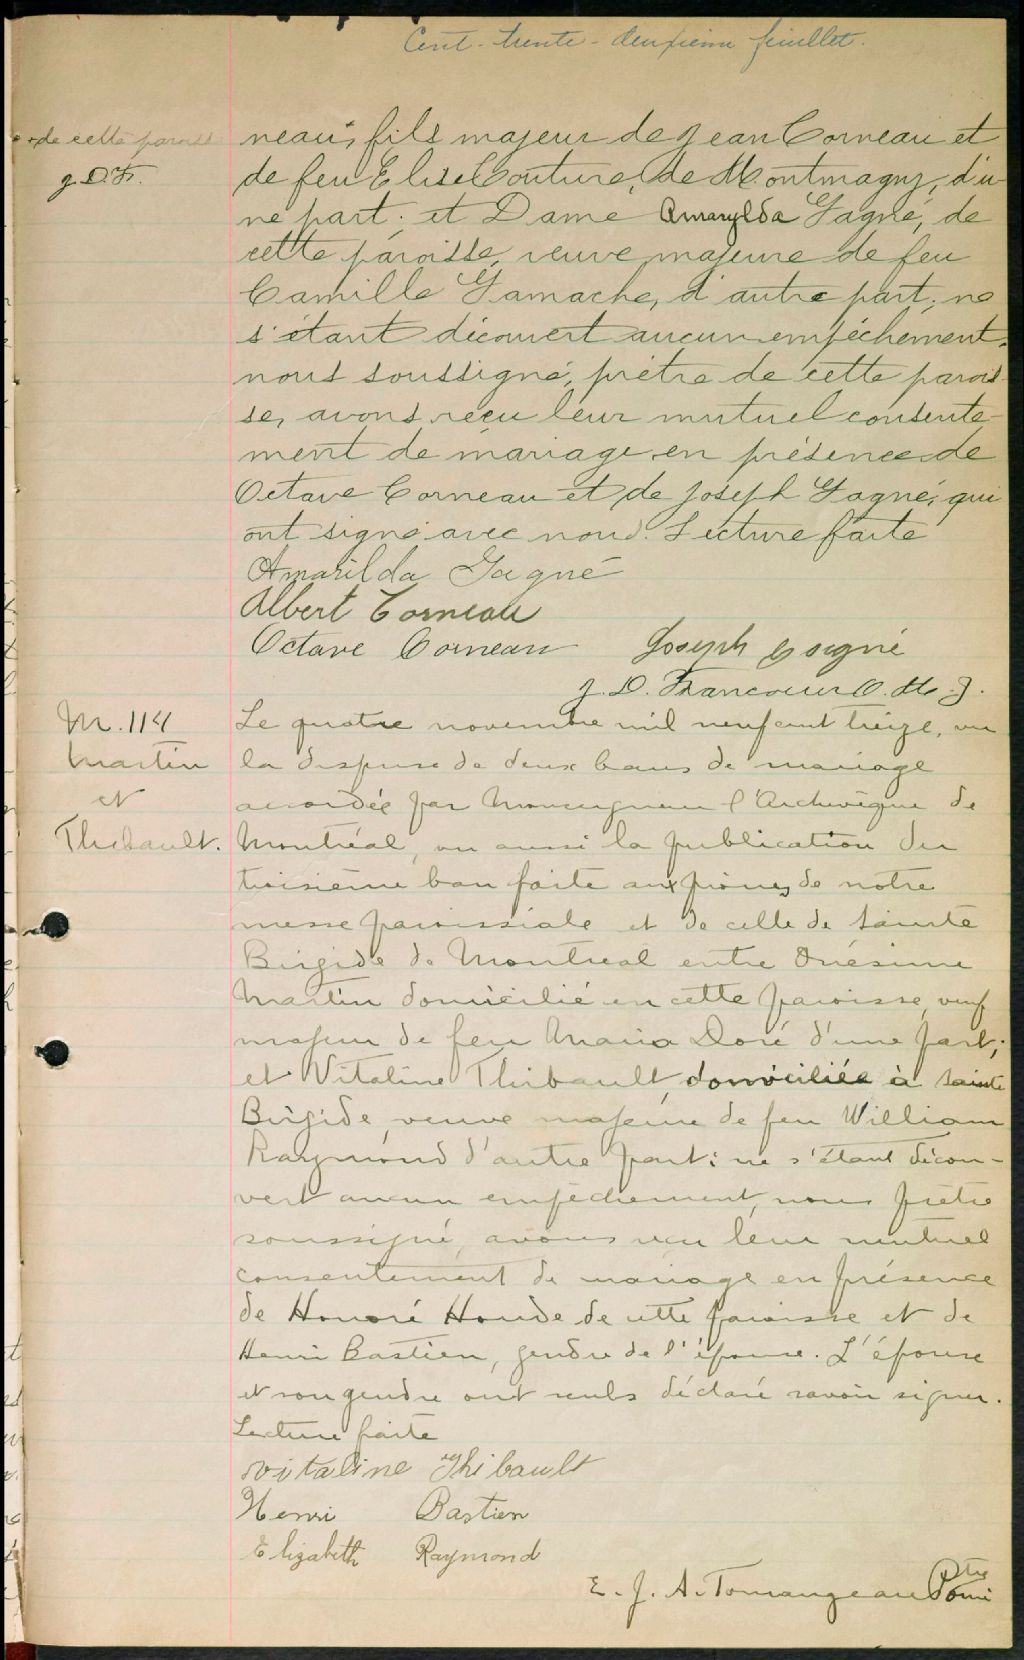 Cent-trente-deuxième feuillet.
+de cette paroisse
J. D. Fr.
neau, fils majeur de Jean Corneau et
de feu Elise Couture, de Montmagny, d'u-
ne part; et Dame Amarylda Gagné, de
cette paroisse, veuve majeure de feu
Camille Gamache, d'autre part; ne
s'étant découvert aucun empêchement,
nous soussigné, prêtre de cette parois-
se, avons reçu leur mutuel consente-
ment de mariage en présence de
Octave Corneau et de Joseph Gagné, qui
ont signé avec nous. Lecture faite
Amarilda Gagné
Albert Corneau
Octave Corneau Joseph Gagné
J. D. Francoeur O.M.I.
M. 114
Martin
et
Thibault.
Le quatre novembre mil neuf cent treize, vu
la dispense de deux bans de mariage
accordée par Monseigneur l'Archevêque de
Montréal, vu aussi la publication du
troisième ban faite aux prônes de notre
messe paroissiale et de celle de Sainte
Brigide de Montréal entre Onésime
Martin domicilié en cette paroisse, veuf
majeur de feu Maria Doré d'une part;
et Vitaline Thibault, domiciliée à Sainte
Brigide, veuve majeure de feu William
Raymond d'autre part: ne s'étant décou-
vert aucun empêchement, nous prêtre
soussigné, avons reçu leur mutuel
consentement de mariage en présence
de Honoré Houde de cette paroisse et de
Henri Bastien, gendre de l'épouse. L'épouse
et son gendre ont seuls déclaré savoir signer.
Lecture faite
Vitaline Thibault
Henri Bastien
Elizabeth Raymond
E. J. A. Tomangeau Ptre